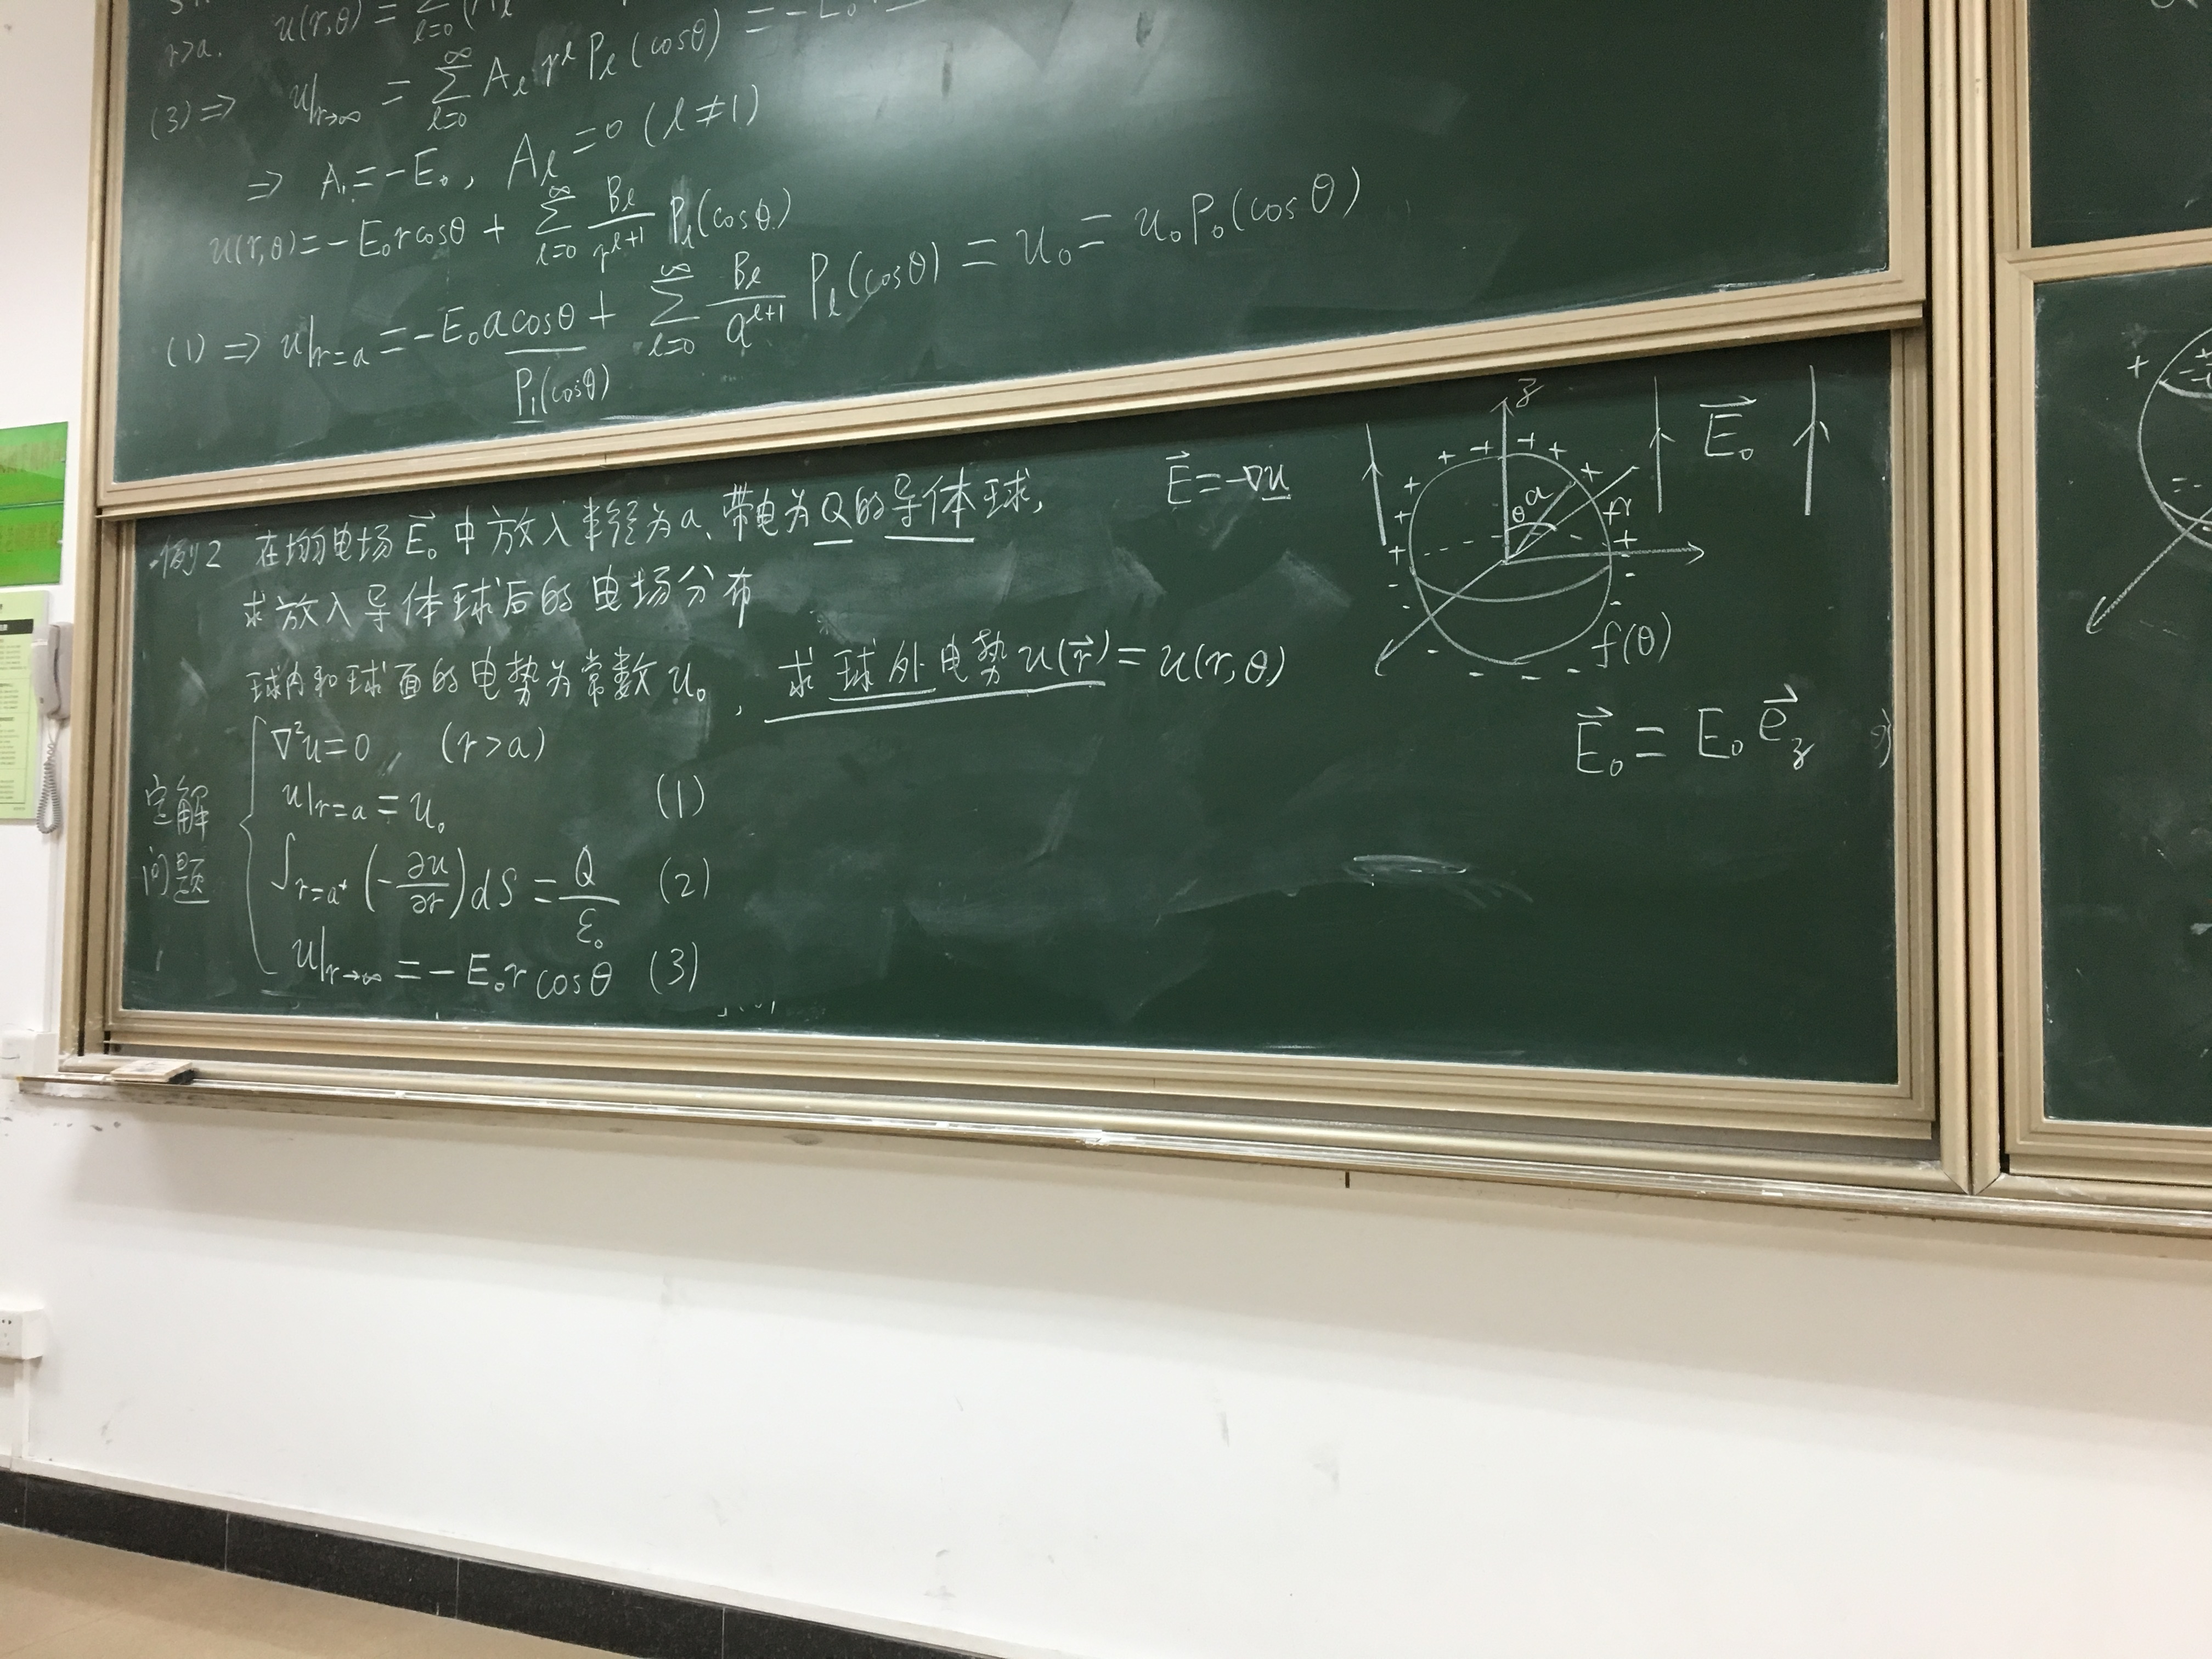 r>a. u(r,θ) = ∑_{l=0}^{∞} (A_l
(3) ⇒ u|_{r→∞} = ∑_{l=0}^{∞} A_l r^l P_l(cosθ) = -E_0
⇒ A_1 = -E_0, A_l = 0 (l≠1)
u(r,θ) = -E_0 r cosθ + ∑_{l=0}^{∞} \frac{B_l}{r^{l+1}} P_l(cosθ)
(1) ⇒ u|_{r=a} = -E_0 a cosθ + ∑_{l=0}^{∞} \frac{B_l}{a^{l+1}} P_l(cosθ) = u_0 = u_0 P_0(cosθ)
P_1(cosθ)
例2 在均匀电场 \vec{E}_0 中放入半径为a、带电为Q的导体球,
求放入导体球后的电场分布
\vec{E} = -∇u
球内和球面的电势为常数 u_0, 求球外电势 u(\vec{r}) = u(r,θ)
定解问题
∇²u = 0, (r>a)
u|_{r=a} = u_0 (1)
∫_{r=a^+} (-\frac{∂u}{∂r}) dS = \frac{Q}{ε_0} (2)
u|_{r→∞} = -E_0 r cosθ (3)
z
\vec{E}_0
θ a
r
f(θ)
\vec{E}_0 = E_0 \vec{e}_z